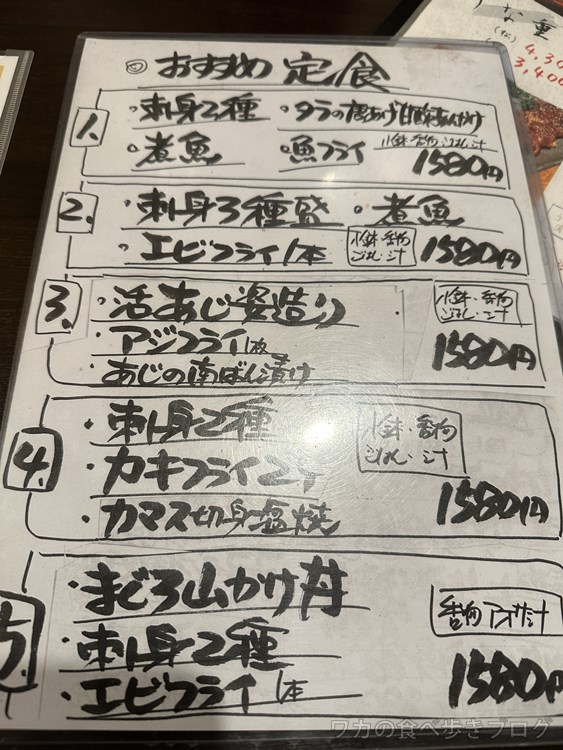 ◎おすすめ定食
1. ・刺身2種 ・タラの唐あげ甘酢あんかけ
・煮魚 ・魚フライ 小鉢・香物 ごはん・汁 1580円
2. ・刺身3種盛 ・煮魚
・エビフライ1本 小鉢・香物 ごはん・汁 1580円
3. ・活あじ姿造り 小鉢・香物 ごはん・汁
・アジフライ1枚 1580円
・あじの南ばん漬け
4. ・刺身2種 小鉢・香物 ごはん・汁
・カキフライ2ケ
・カマス切身塩焼 1580円
5. ・まぐろ山かけ丼 香物 アオサ汁
・刺身2種
・エビフライ1本 1580円
な重
(松)
4,30
3,400
ワカの食べ歩きブログ